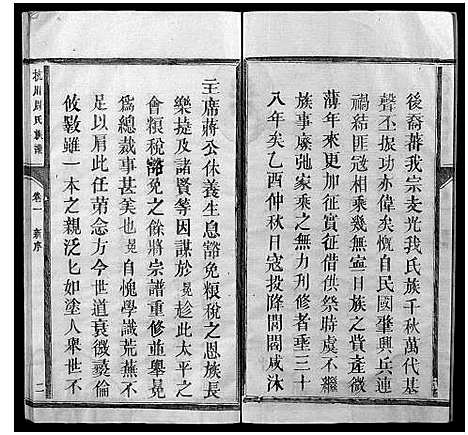 後裔蕃我宗支光我氏族千秋萬代基
聲丕振功亦偉矣慨自民國肇興兵連
禍結匪寇相乘幾無寍日族之貲產微
薄年來更加征實征借供祭時虞不得
族事廢弛家乘之無力刋修者垂三十
八年矣乙酉仲秋日寇投降閭閻咸沐
主席蔣公休養生息豁免粮稅之恩族長
樂捷及諸賢等因謀於晃趁此太平之
會粮稅豁免之餘將宗譜重修並舉晃
爲總裁事甚美也晃自愧學識荒蕪不
足以肩此任第念方今世道衰微彞倫
攸斁雖一本之親泛七如塗人舉世不
杭川周氏族譜
卷一
新序
二